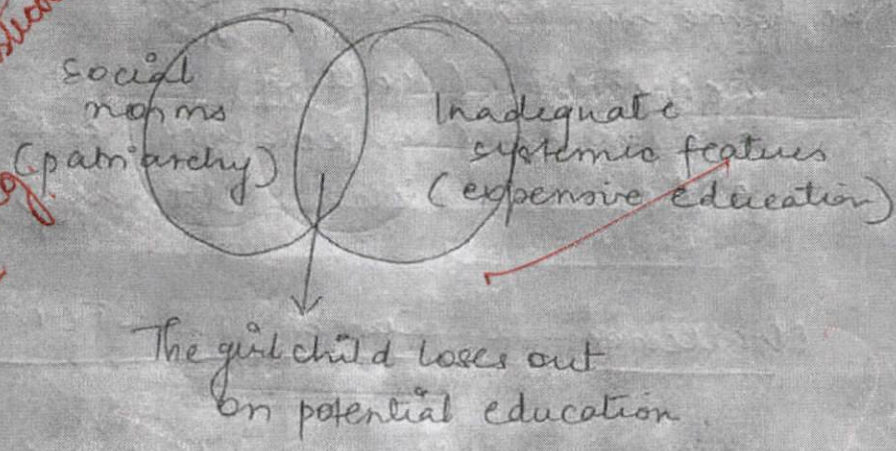 social
norms
(patriarchy)
Inadequate
systemic features
(expensive education)
The girl child loses out
on potential education